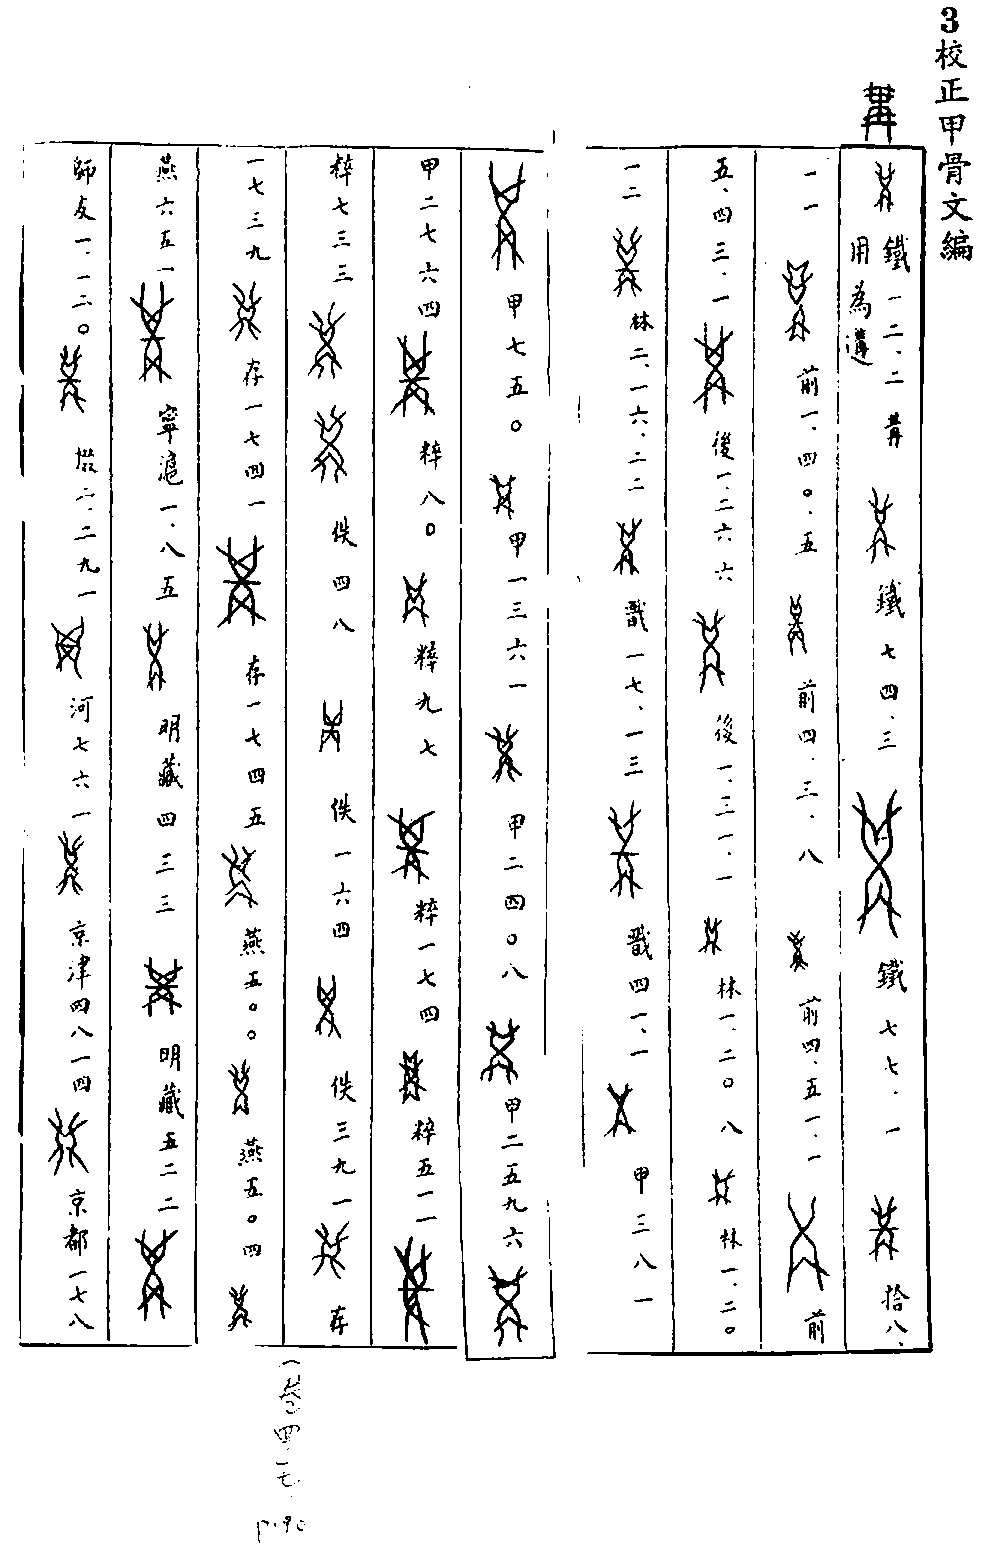 3校正甲骨文編
冓
鐵一二.二冓用為遘 鐵七四.三 鐵七七.一 拾八.
一一 前一.四〇.五 前四.三.八 前四.五一.一 前
五.四三.一 後一.二六六 後一.三一.一 林一.二〇八 林一.二〇
一二 林二.一六.二二 戩一七.一三 戩四一.一 甲三八一
甲七五〇 甲一三六一 甲二四〇八 甲二五九六
甲二七六四 粹八〇 粹九七 粹一七四 粹五一一
粹七三三 佚四八 佚一六四 佚三九一 存
一七三九 存一七四一 存一七四五 燕五〇〇 燕五〇四
燕六五一 寧滬一.八五 明藏四三三 明藏五二二
師友一.一二〇 掇二.二九一 河七六一 京津四八一四 京都一七八
一卷四.一七
p.90